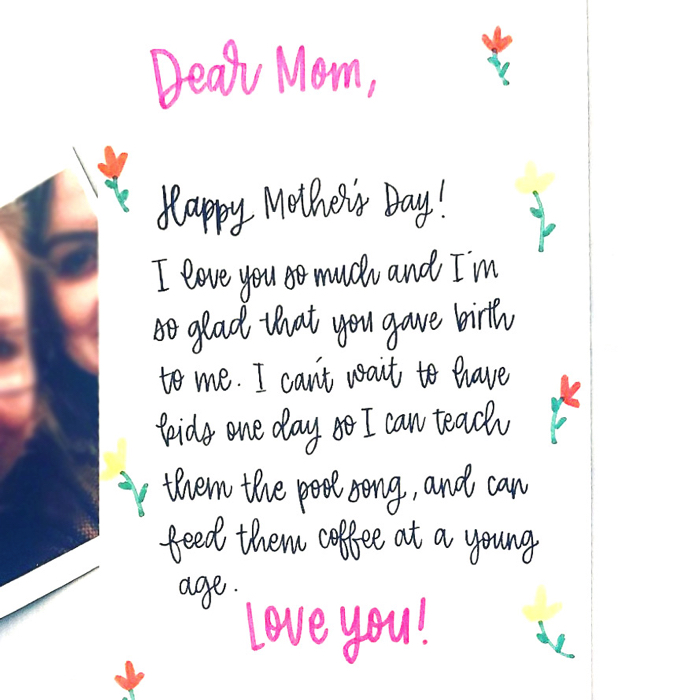 Dear Mom,
Happy Mother's Day!
I love you so much and I'm
so glad that you gave birth
to me. I can't wait to have
kids one day so I can teach
them the pool song, and can
feed them coffee at a young
age.
Love you!